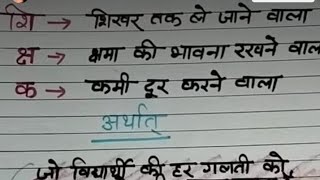 शि → शिखर तक ले जाने वाला
क्ष → क्षमा की भावना रखने वाल
क → कमी दूर करने वाला
अर्थात्
जो विद्यार्थी की हर गलती को,